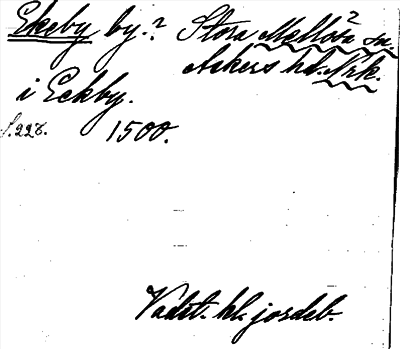 Ekeby by.? Stora Mellösa? sn.
Askers hd. Nrk.
i Eekby.
s. 228. 1500.
Vadst. kl. jordeb.